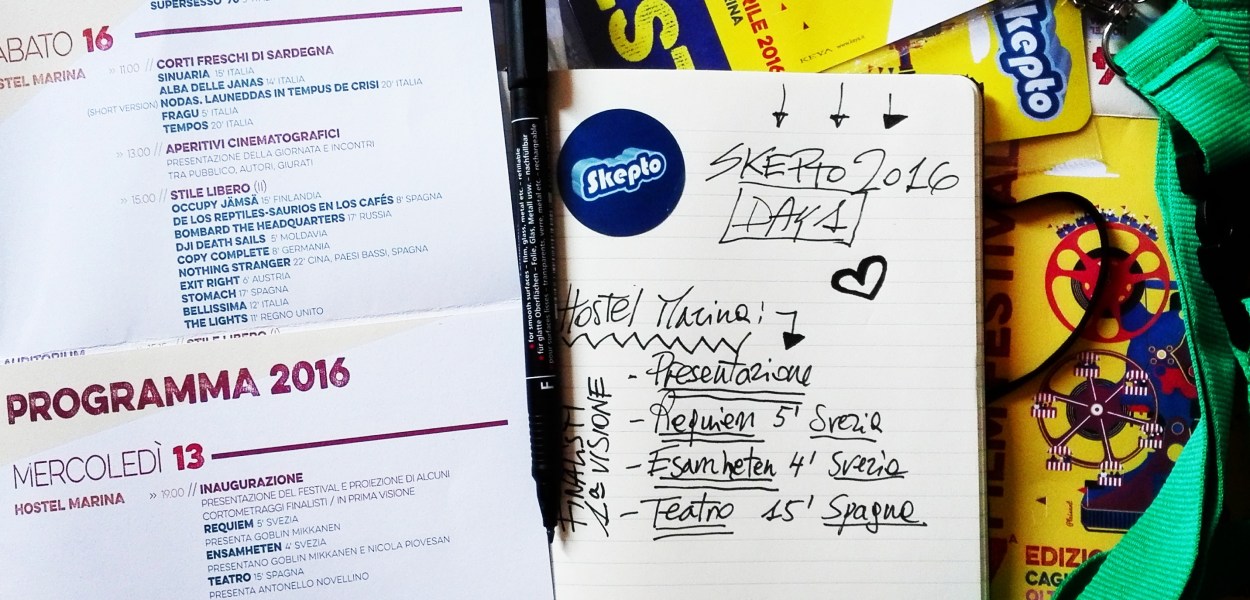 SUPERSESSO
ABATO 16
HOSTEL MARINA
» 11.00 // CORTI FRESCHI DI SARDEGNA
SINUARIA 15' ITALIA
ALBA DELLE JANAS 14' ITALIA
(SHORT VERSION) NODAS. LAUNEDDAS IN TEMPUS DE CRISI 20' ITALIA
FRAGU 5' ITALIA
TEMPOS 20' ITALIA
» 13.00 // APERITIVI CINEMATOGRAFICI
PRESENTAZIONE DELLA GIORNATA E INCONTRI
TRA PUBBLICO, AUTORI, GIURATI
» 15.00 // STILE LIBERO (II)
OCCUPY JÄMSÄ 15' FINLANDIA
DE LOS REPTILES-SAURIOS EN LOS CAFÉS 8' SPAGNA
BOMBARD THE HEADQUARTERS 17' RUSSIA
DJI DEATH SAILS 5' MOLDAVIA
COPY COMPLETE 8' GERMANIA
NOTHING STRANGER 22' CINA, PAESI BASSI, SPAGNA
EXIT RIGHT 6' AUSTRIA
STOMACH 17' SPAGNA
BELLISSIMA 12' ITALIA
THE LIGHTS 11' REGNO UNITO
AUDITORIUM
// STILE LIBERO (I)
PROGRAMMA 2016
MERCOLEDÌ 13
HOSTEL MARINA
» 19.00 // INAUGURAZIONE
PRESENTAZIONE DEL FESTIVAL E PROIEZIONE DI ALCUNI
CORTOMETRAGGI FINALISTI / IN PRIMA VISIONE
REQUIEM 5' SVEZIA
PRESENTA GOBLIN MIKKANEN
ENSAMHETEN 4' SVEZIA
PRESENTANO GOBLIN MIKKANEN E NICOLA PIOVESAN
TEATRO 15' SPAGNA
PRESENTA ANTONELLO NOVELLINO
for smooth surfaces - film, glass, metal etc. - refillable
für glatte Oberflächen - Folie, Glas, Metall usw. - nachfüllbar
F
Skepto
SKEPTO 2016
DAY 1
Hostel Marina:
FINALISTI
1a VISIONE
- Presentazione
- Requiem 5' Svezia
- Esamheten 4' Svezia
- Teatro 15' Spagna
RILE 2016
RINA
KEYA
Skepto
FILM FESTIVAL
EDIZIO
CAGL